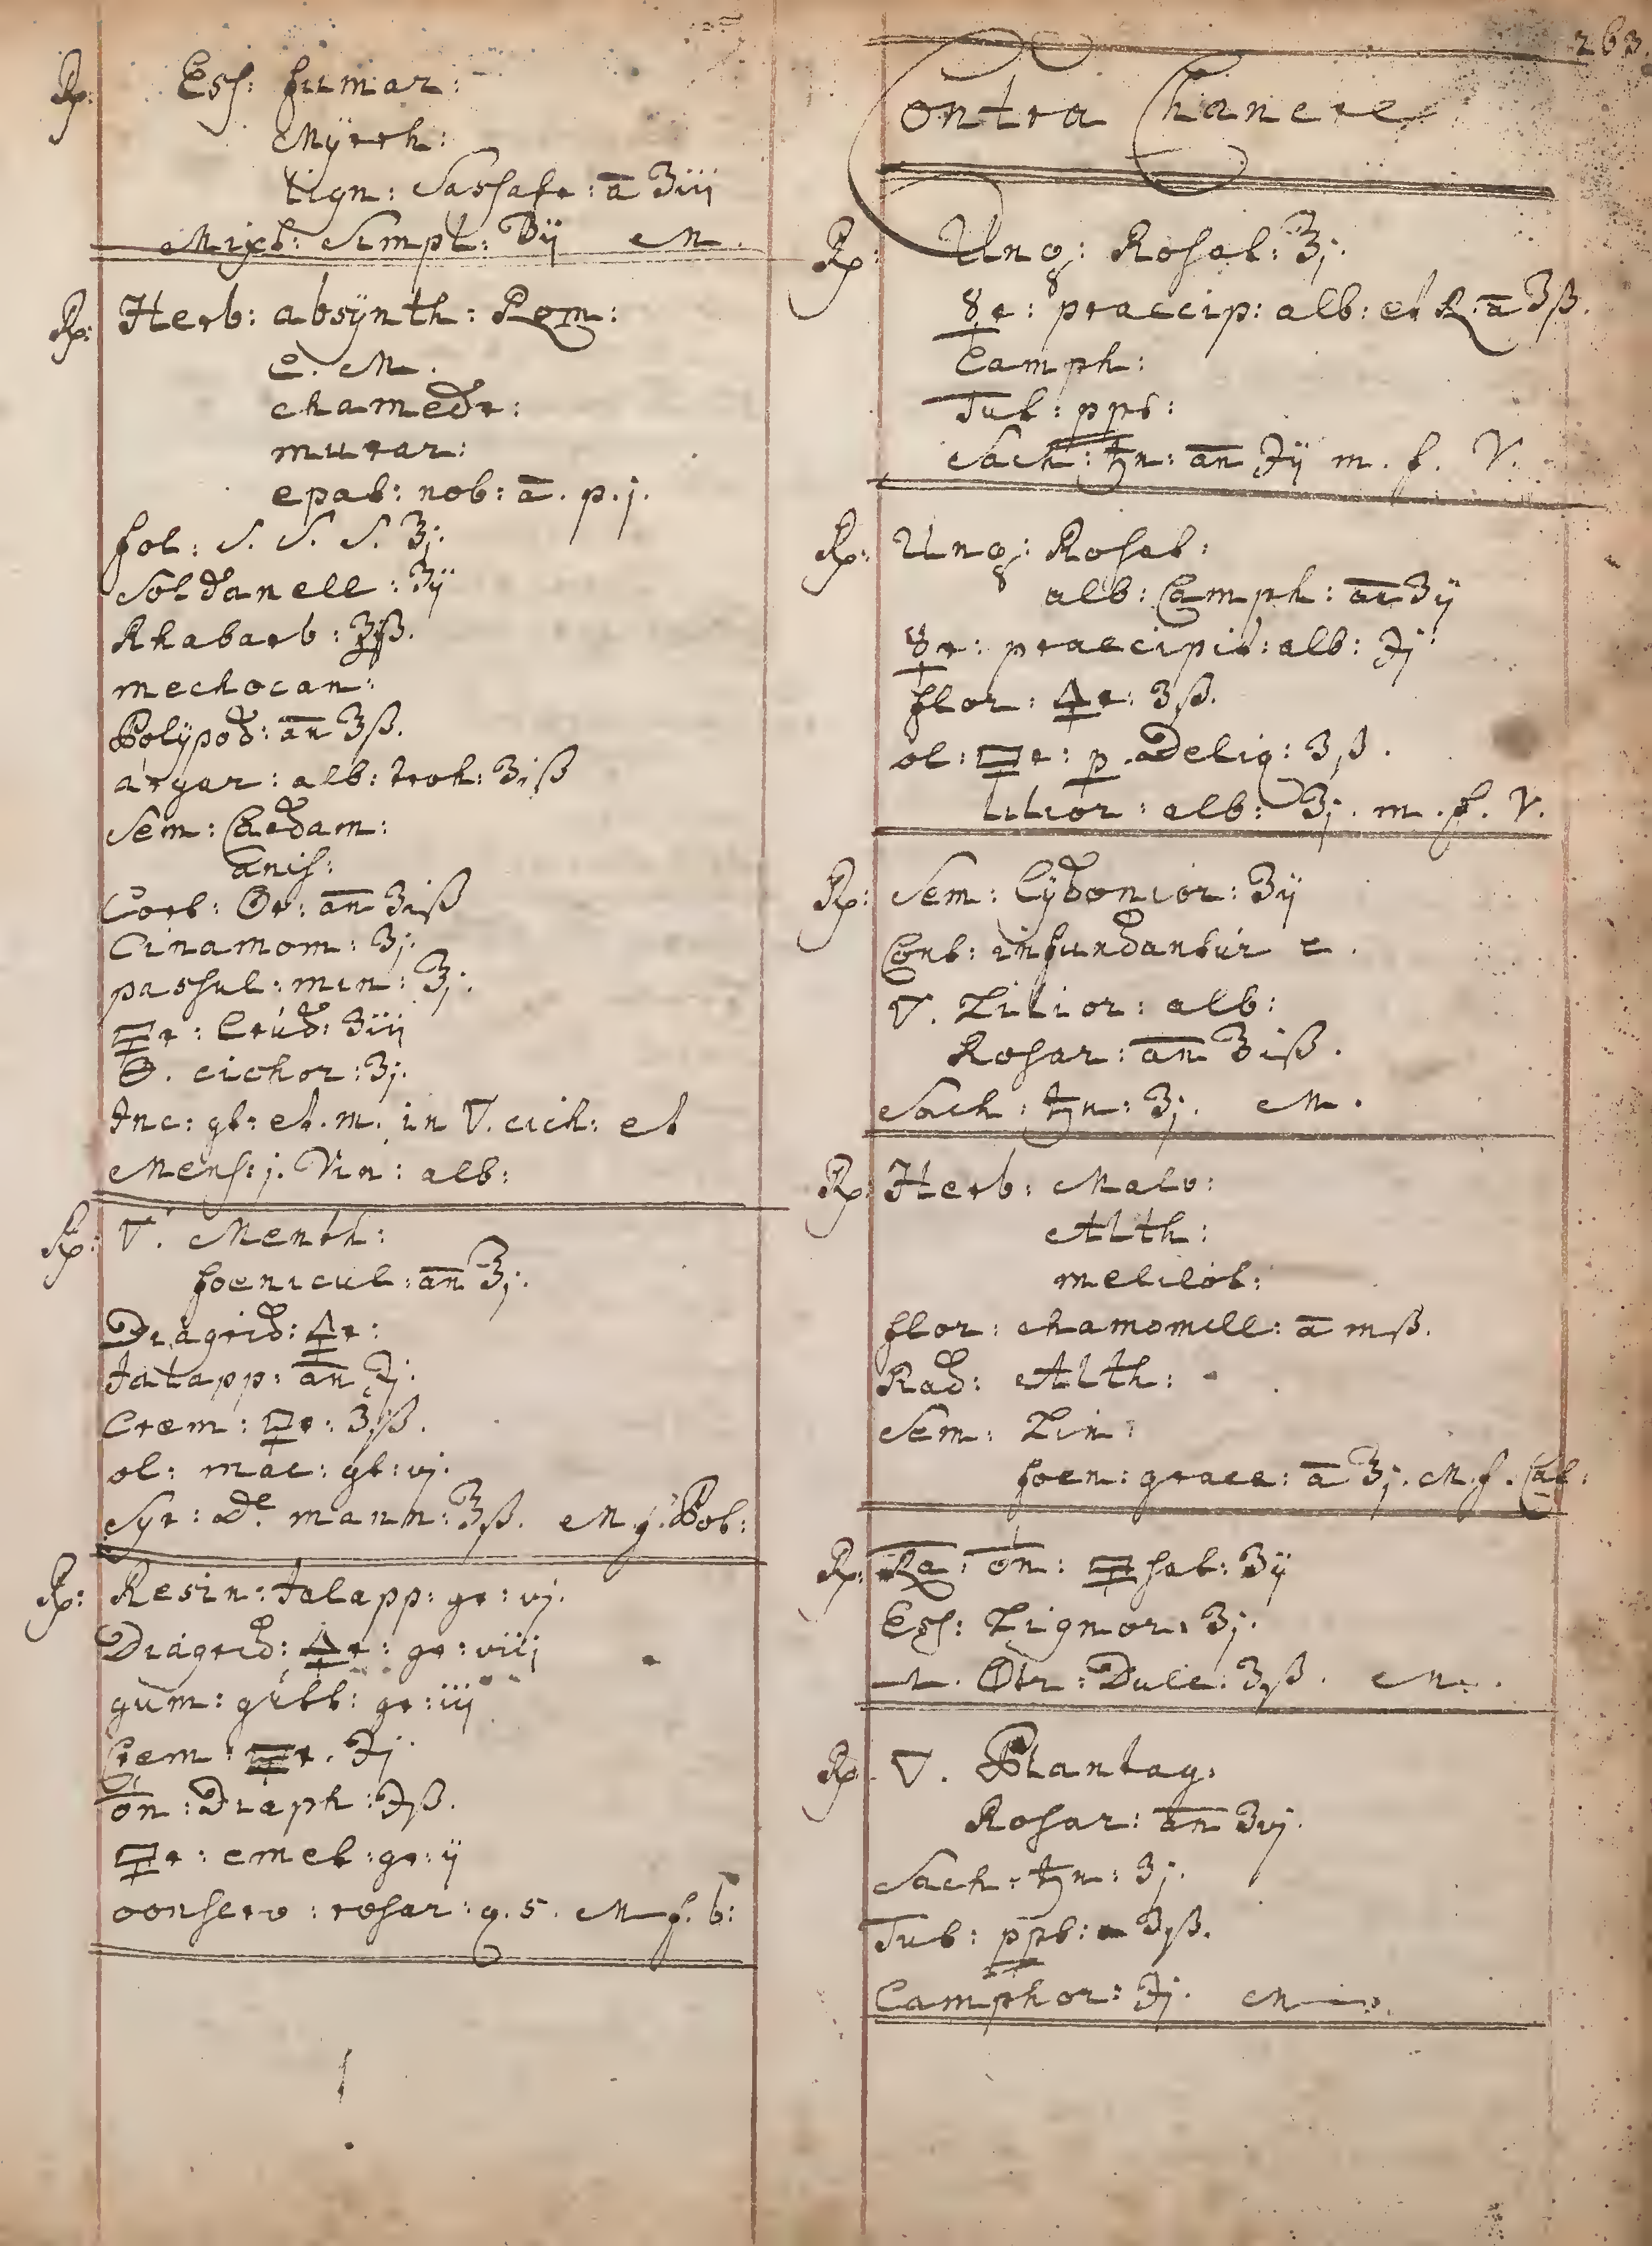 ℞: Ess: fumar:
Myrrh:
lign: Sassafr: ā ʒiij
Mixt: Simpl: ℈ij M.
℞: Herb: absÿnth: Rom:
C. M.
chamedr:
murar:
epat: nob: ā. p. j.
fol: S. S. S. ℥j.
Soldanell: ʒij
Rhabarb: ʒß.
mechocan:
Polÿpod: an ʒß.
argar: alb: troh: ʒiß
Sem: Cardam:
anis:
Cort: Or: an ʒiß
Cinamom: ʒj.
passul: min: ℥j.
🜿r: Crud: ʒiij
🜔. cichor: ʒj.
Inc: gt: et. m. in 🜄. cich: et
Mens: j. Vin: alb:
℞: 🜄. Menth:
foenicul: an ℥j.
Diagrid: 🜍r:
Jalapp: an ℈j.
Crem: 🜿r: ʒß.
ol: mac: gt: vj.
Syr: de mann: ℥ß. M. f. Pot:
℞: Resin: Jalapp: gr: vj.
Diagrid: 🜍r: gr: viij
gum: gutt: gr: iij
Crem: 🜿r. ℈j.
on: Diaph: ℈ß.
🜿r: emet: gr: ij
conserv: rosar: q. s. M f. b:
263.
Contra Chancre
℞: Ung: Rosat: ℥j.
☿r: praecip: alb: et R. ā ʒß.
Camph:
Tut: ppt:
Sach: ♄n: an ℈ij m. f. V.
℞: Ung: Rosat:
alb: Camph: an ʒij
☿r: praecipit: alb: ℈j.
flor: 🜍r: ʒß.
ol: 🜿r: p. Deliq: ʒß.
lilior: alb: ʒj. m. f. V.
℞: Sem: Cÿdonior: ʒij
Cont: infundantur c.
🜄. Lilior: alb:
Rosar: an ℥iß.
Sach: ♄n: ʒj. M.
℞: Herb: Malv:
Alth:
melilot:
flor: chamomill: ā mß.
Rad: Alth:
Sem: Lin:
foen: graec: ā ʒj. M. f. Cat:
℞: Ra: on: 🜿sat: ʒij
Ess: Lignor: ʒj.
Dulc: ʒß. M.
℞: 🜄. Plantag:
Rosar: an ʒvj.
Sach: ♄n: ʒj.
Tut: ppt: ʒß.
Camphor: ℈j. M